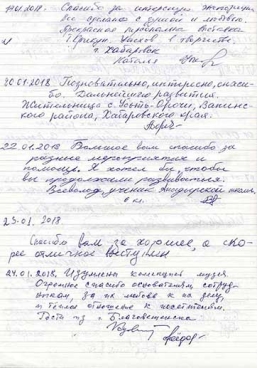 19.01.2018. Спасибо за интересную экскурсию.
Все сделано с душой и любовью.
Прекрасно
г. Хабаровск
Наталья
20.01.2018 Познавательно, интересно, спаси-
бо. Дальнейшего развития.
Жительница с. Усть-Орочи, Ванинс-
кого района, Хабаровского края.
22.01.2018 Большое вам спасибо за
разные мероприятия и
помощь. Я хотел бы, чтобы
вы продолжали развиваться.
Всеволод, ученик школы,
23.01.2018
Спасибо вам за хорошее, а ско-
рее отличное
24.01.2018. Изумлены коллекцией музея.
Огромное спасибо основателям, сотруд-
никам, за их любовь к их делу,
и теплое отношение к посетителям.
Гости из г. Благовещенска